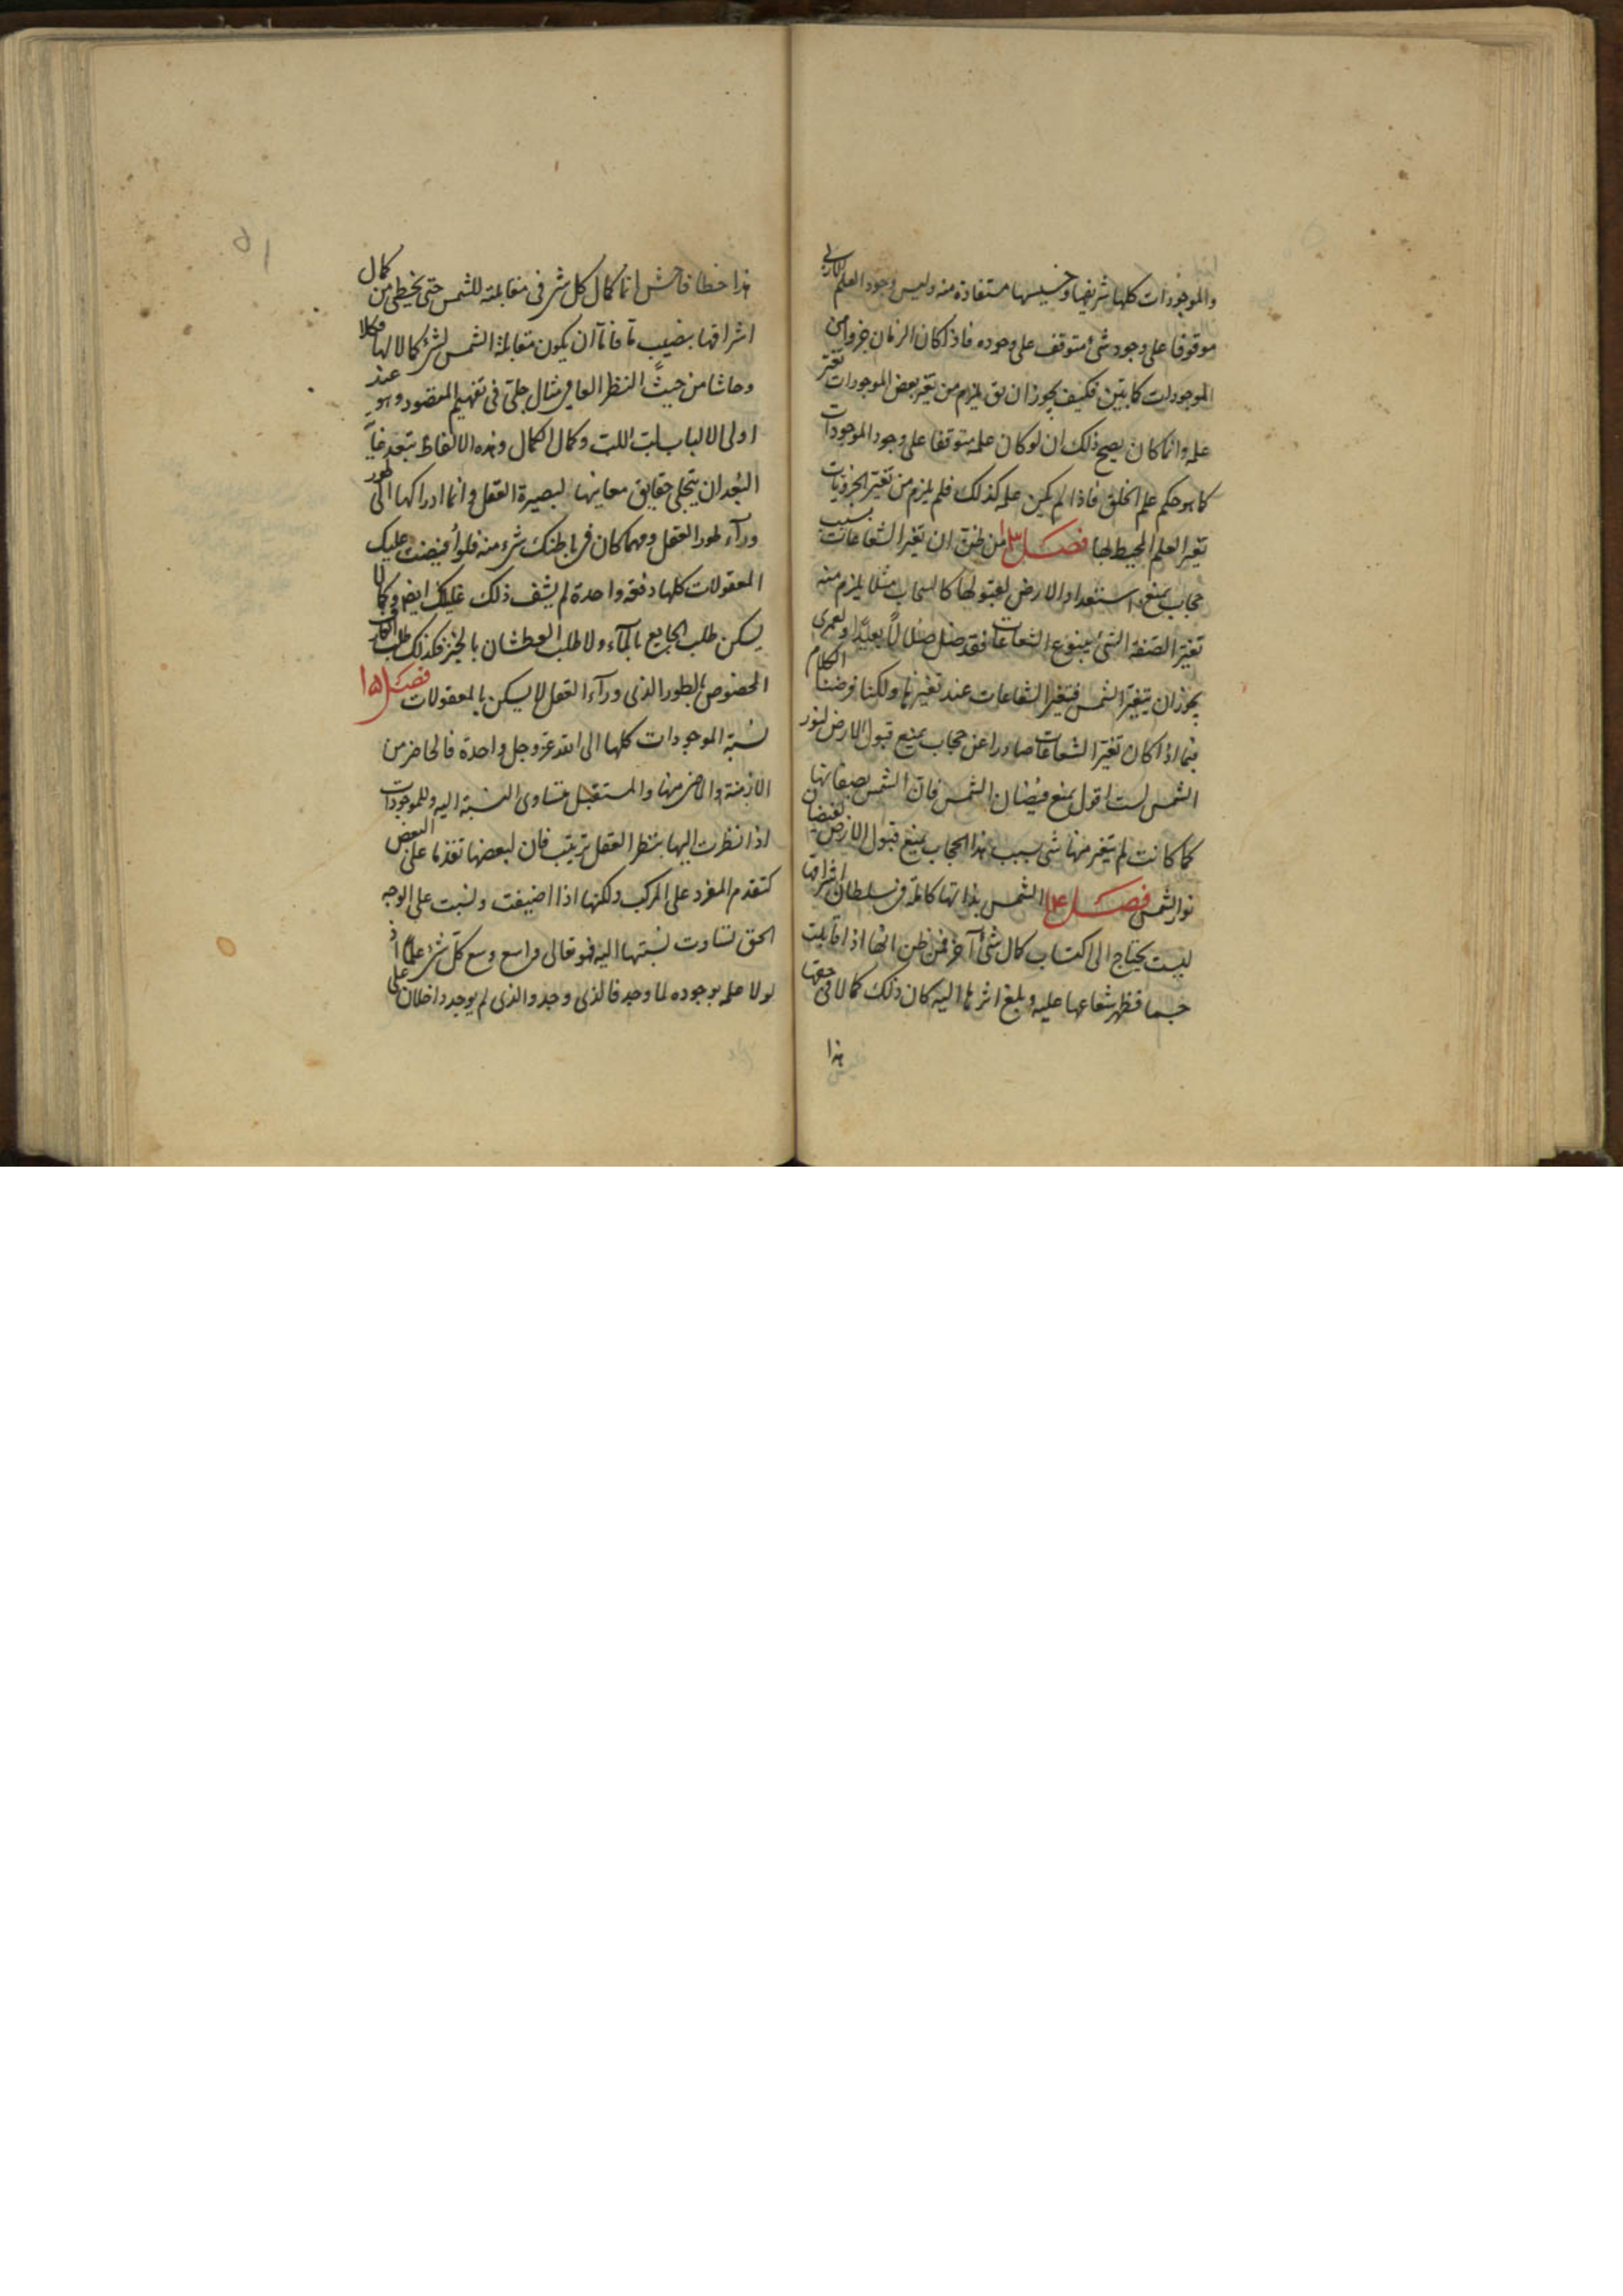 والموجودات كلها شريفها وخسيسها مستفادة منه وليس وجود العلم الازلي
موقوفا على وجود شئ متوقف على وجوده فاذا كان الزمان جزوا من
الموجودات فكيف يجوز ان يق يلزم من تغير بعض الموجودات تغير
علمه وانما كان يصح ذلك ان لو كان علمه متوقفا على وجود الموجودات
كما هو حكم علم الخلق فاذا لم يكن علمه كذلك فلم يلزم من تغير الجزويات
تغير العلم المحيط بها فصل ١٣ من ظن ان تغير الشعاعات بسبب
حجاب يمنع استعداد الارض لقبولها كالسحاب مثلا يلزم منه
تغير الصفة التي ينبوع الشعاعات فقد ضل ضلالا بعيدا ولعمري
يجوز ان يتغير الشمس فتغير الشعاعات عند تغيرها ولكنا فرضنا الكلام
فيما اذا كان تغير الشعاعات صادرا عن حجاب يمنع قبول الارض لنور
الشمس لست اقول يمنع فيضان الشمس فان الشمس بصفاتها
كما كانت لم يتغير منها شئ بسبب هذا الحجاب يمنع قبول الارض لفيضان
نور الشمس فصل ١٤ الشمس بذاتها كاملة في سلطان اشراقها
ليست يحتاج الى اكتساب كمال شئ آخر فمن ظن انها اذا قابلت
جسما فظهر شعاعها عليه وبلغ اثرها اليه كان ذلك كمالا في حقها
هذا
٥١
هذا خطا فاحش انما كمال كل شئ في مقابلته للشمس حتى يحظى من كمال
اشراقها بنصيب ما فاما ان يكون مقابلة الشمس لشئ كمالا لها فكلا
وحاشا من حيث النظر العامي مثال جلي في تفهيم المقصود وهو عند
اولى الالباب لب اللب وكمال الكمال وهذه الالفاظ يتبعد غاية
البعد ان يتجلى حقايق معانيها لبصيرة العقل وانما ادراكها الى طور
ورآء طور العقل ومهما كان في باطنك شئ منه فلو افيضت عليك
المعقولات كلها دفعة واحدة لم يشف ذلك غليلك ايضا وكما لا
يسكن طلب الجايع بالمآء ولا طلب العطشان بالخبز فكذلك طلب
المخصوص بالطور الذى ورآء العقل لا يسكن بالمعقولات فصل ١٥
نسبة الموجودات كلها الى الله عز وجل واحدة فالحاضر من
الازمنة والماضى منها والمستقبل متساوى النسبة اليه وللموجودات
اذا نظرت اليها بنظر العقل ترتيب فان لبعضها تقدما على البعض
كتقدم المفرد على المركب ولكنها اذا اضيفت ونسبت على الوجه
الحق تساوت نسبتها اليه فهو تعالى واسع وسع كل شئ علما اذ
لولا علمه بوجوده لما وجد فالذى وجد والذى لم يوجد داخلان